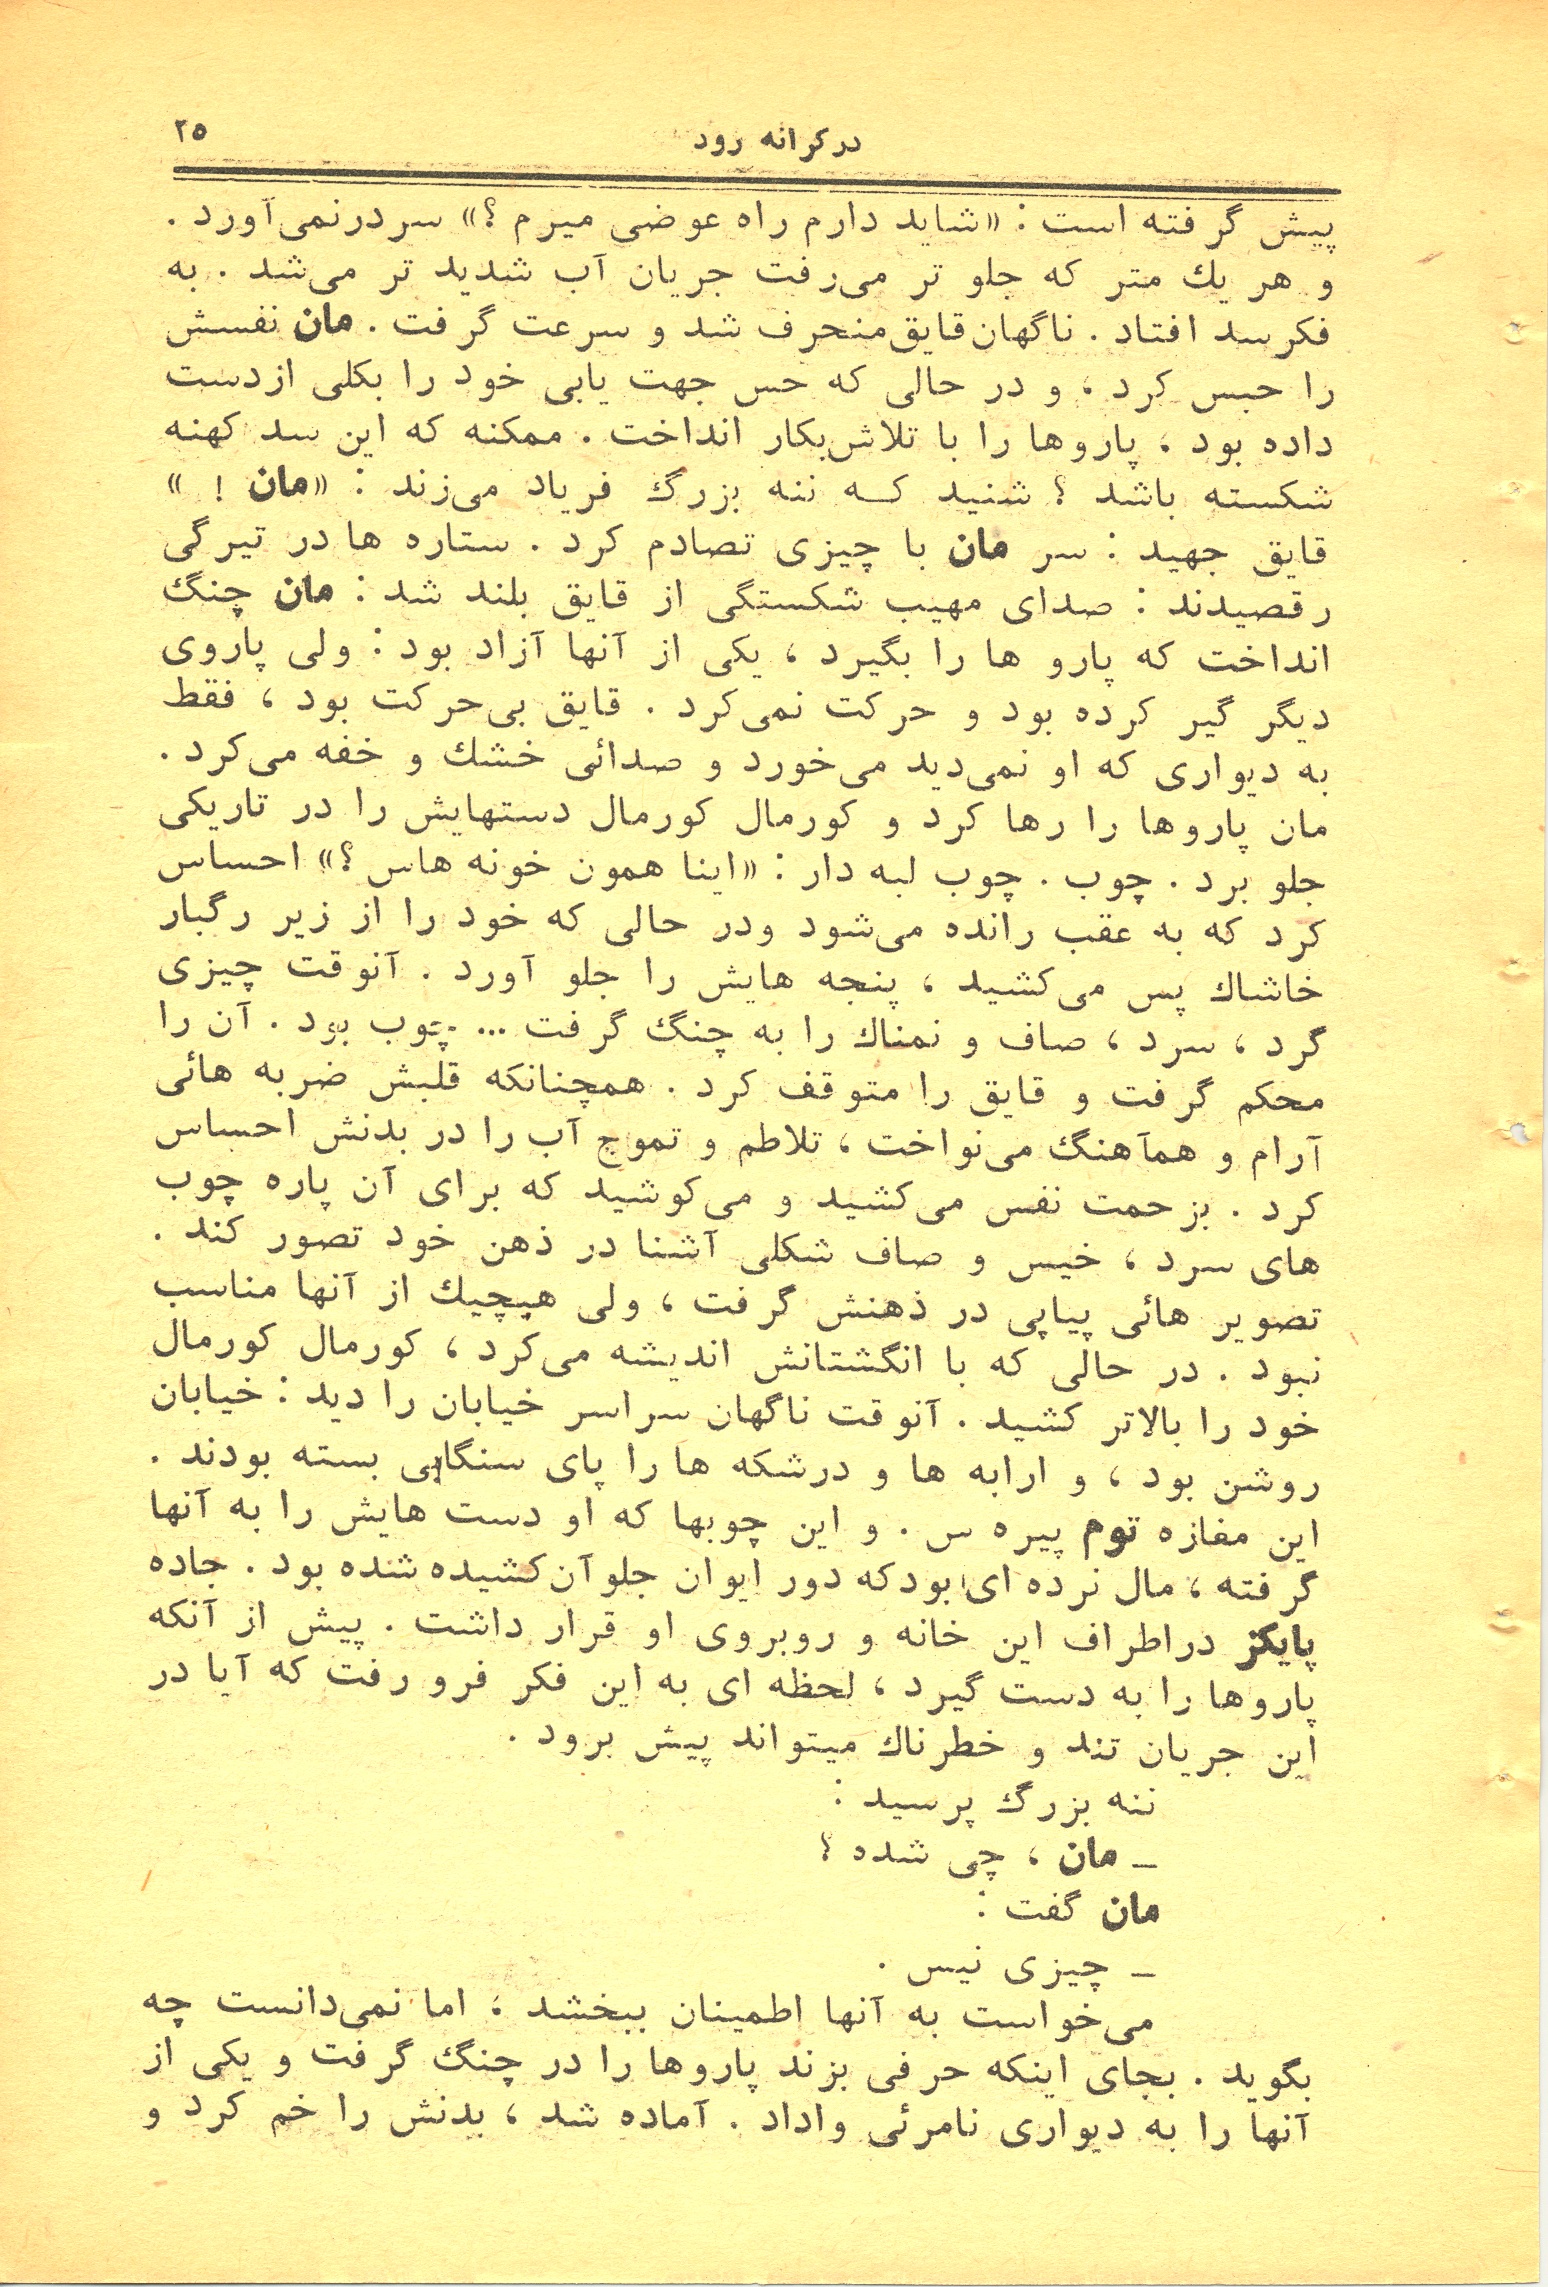 در کرانه رود
۲۵
پیش گرفته است : «شاید دارم راه عوضی میرم ؟» سر درنمی‌آورد .
و هر یك متر که جلو تر می‌رفت جریان آب شدید تر می‌شد . به
فکر سد افتاد . ناگهان قایق منحرف شد و سرعت گرفت . مان نفسش
را حبس کرد ، و در حالی که حس جهت یابی خود را بکلی ازدست
داده بود ، پاروها را با تلاش بکار انداخت . ممکنه که این سد کهنه
شکسته باشد ؟ شنید کــه ننه بزرگ فریاد می‌زند : «مان ! »
قایق جهید : سر مان با چیزی تصادم کرد . ستاره ها در تیرگی
رقصیدند : صدای مهیب شکستگی از قایق بلند شد : مان چنگ
انداخت که پارو ها را بگیرد ، یکی از آنها آزاد بود : ولی پاروی
دیگر گیر کرده بود و حرکت نمی‌کرد . قایق بی‌حرکت بود ، فقط
به دیواری که او نمی‌دید می‌خورد و صدائی خشك و خفه می‌کرد .
مان پاروها را رها کرد و کورمال کورمال دستهایش را در تاریکی
جلو برد . چوب . چوب لبه دار : «اینا همون خونه هاس ؟» احساس
کرد که به عقب رانده می‌شود ودر حالی که خود را از زیر رگبار
خاشاك پس می‌کشید ، پنجه هایش را جلو آورد . آنوقت چیزی
گرد ، سرد ، صاف و نمناك را به چنگ گرفت ... چوب بود . آن را
محکم گرفت و قایق را متوقف کرد . همچنانکه قلبش ضربه هائی
آرام و همآهنگ می‌نواخت ، تلاطم و تموج آب را در بدنش احساس
کرد . بزحمت نفس می‌کشید و می‌کوشید که برای آن پاره چوب
های سرد ، خیس و صاف شکلی آشنا در ذهن خود تصور کند .
تصویر هائی پیاپی در ذهنش گرفت ، ولی هیچیك از آنها مناسب
نبود . در حالی که با انگشتانش اندیشه می‌کرد ، کورمال کورمال
خود را بالاتر کشید . آنوقت ناگهان سراسر خیابان را دید : خیابان
روشن بود ، و ارابه ها و درشکه ها را پای سنگابی بسته بودند .
این مغازه توم پیره س . و این چوبها که او دست هایش را به آنها
گرفته ، مال نرده ای بود که دور ایوان جلو آن کشیده شده بود . جاده
پایکز دراطراف این خانه و روبروی او قرار داشت . پیش از آنکه
پاروها را به دست گیرد ، لحظه ای به این فکر فرو رفت که آیا در
این جریان تند و خطرناك میتواند پیش برود .
ننه بزرگ پرسید :
ـ مان ، چی شده ؟
مان گفت :
ـ چیزی نیس .
می‌خواست به آنها اطمینان ببخشد ، اما نمی‌دانست چه
بگوید . بجای اینکه حرفی بزند پاروها را در چنگ گرفت و یکی از
آنها را به دیواری نامرئی واداد . آماده شد ، بدنش را خم کرد و